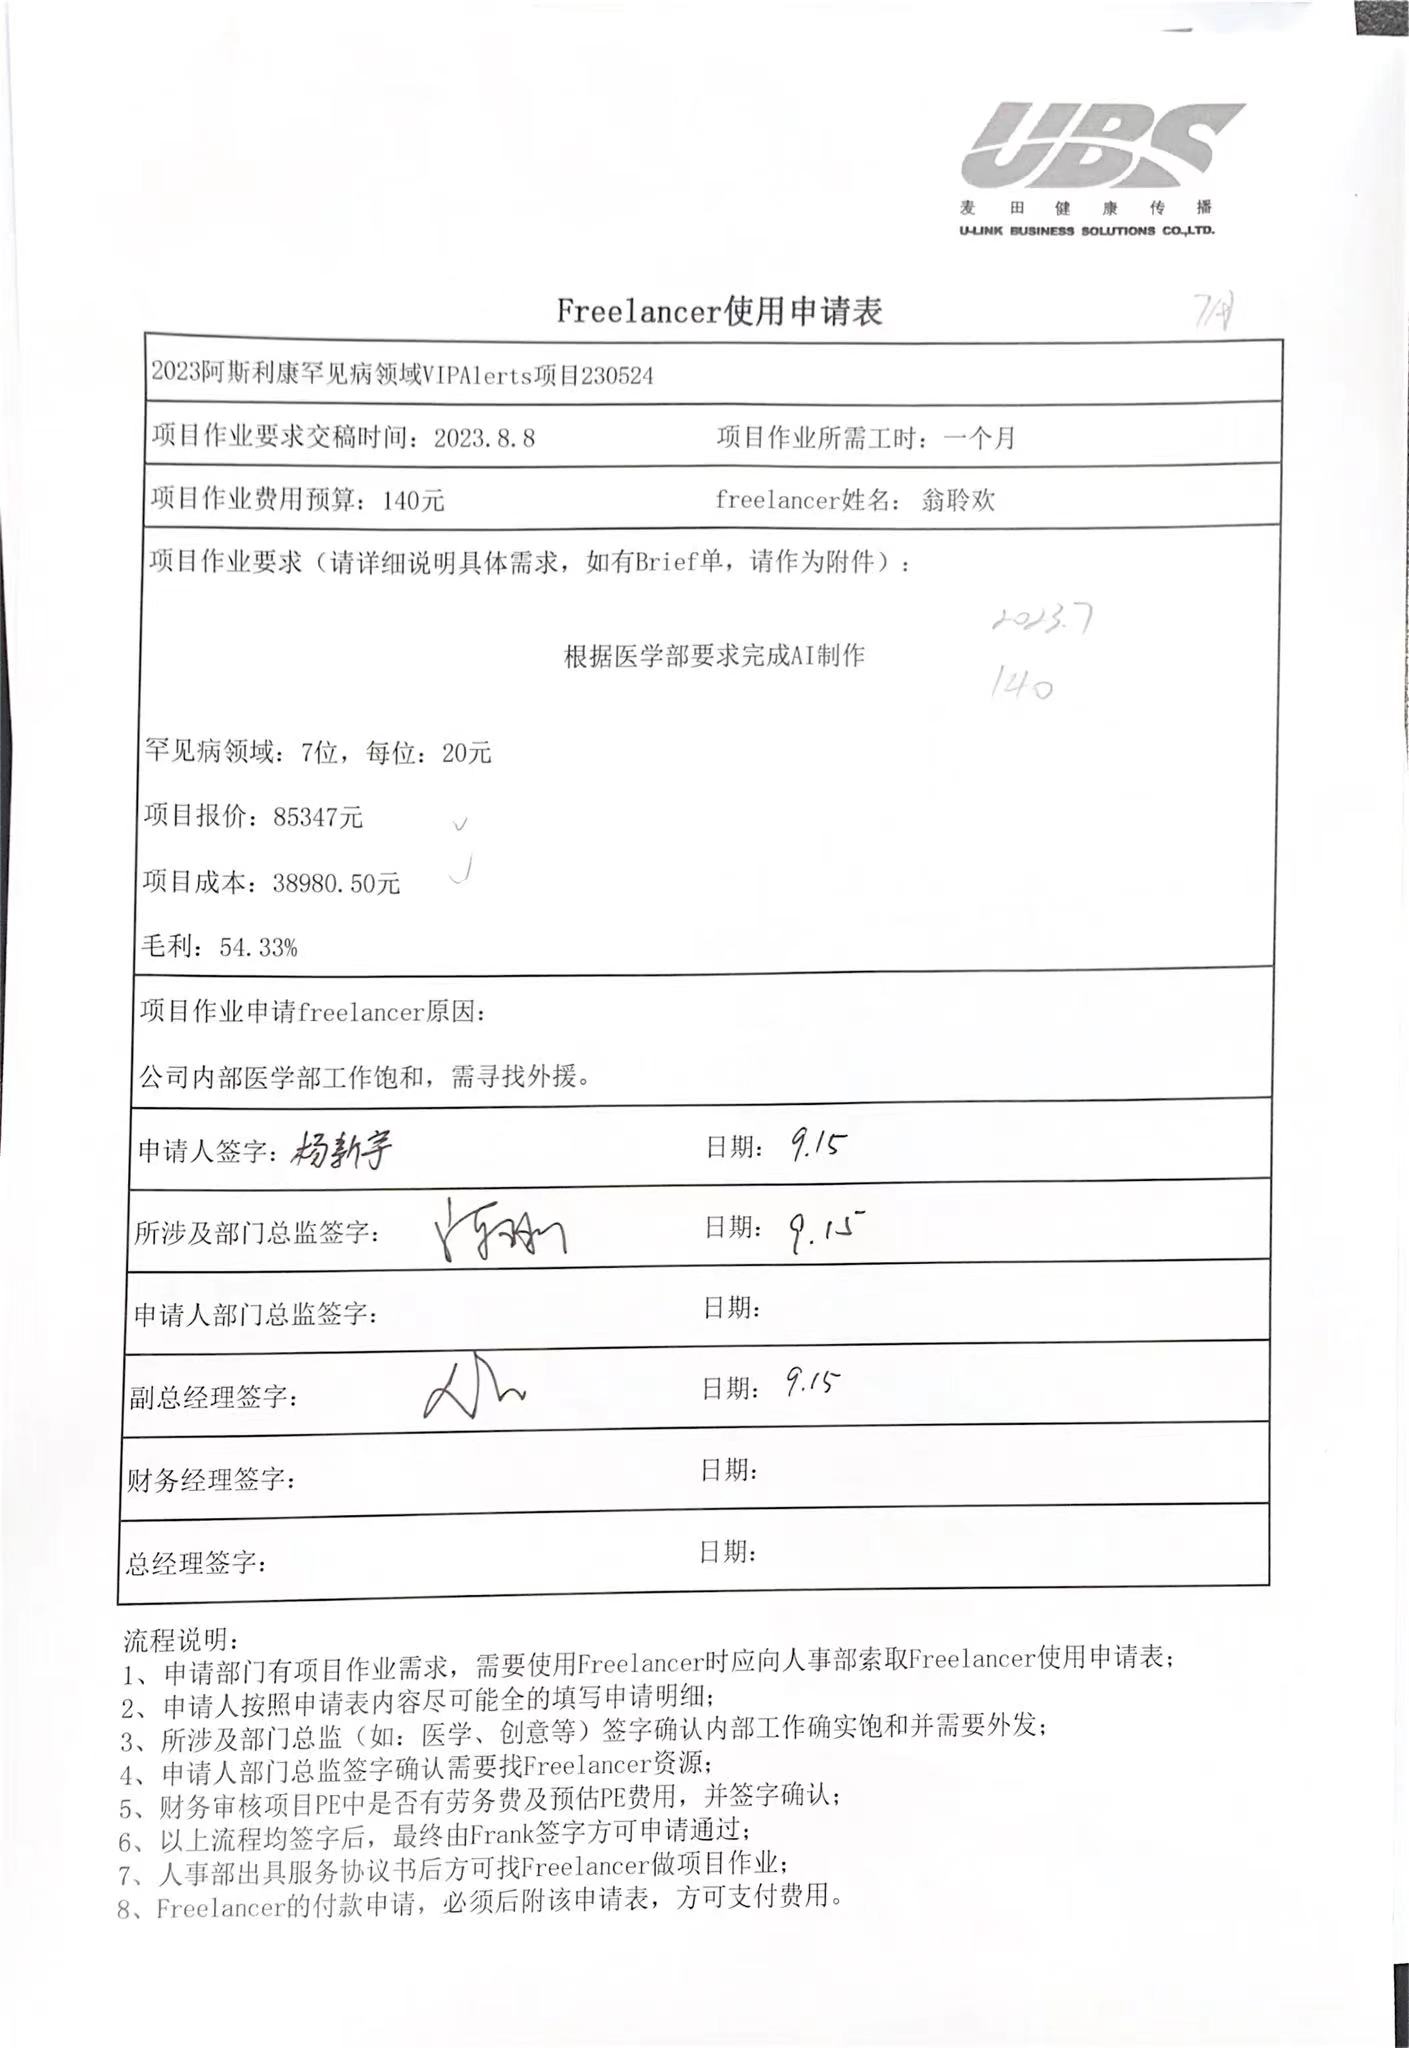 UBS
麦田健康传播
U-LINK BUSINESS SOLUTIONS CO.,LTD.
Freelancer使用申请表
7月
2023阿斯利康罕见病领域VIPAlerts项目230524
项目作业要求交稿时间：2023.8.8 项目作业所需工时：一个月
项目作业费用预算：140元 freelancer姓名：翁聆欢
项目作业要求（请详细说明具体需求，如有Brief单，请作为附件）：
2023.7
根据医学部要求完成AI制作
140
罕见病领域：7位，每位：20元
项目报价：85347元
项目成本：38980.50元
毛利：54.33%
项目作业申请freelancer原因：
公司内部医学部工作饱和，需寻找外援。
申请人签字：杨新宇 日期：9.15
所涉及部门总监签字： 日期：9.15
申请人部门总监签字： 日期：
副总经理签字： 日期：9.15
财务经理签字： 日期：
总经理签字： 日期：
流程说明：
1、申请部门有项目作业需求，需要使用Freelancer时应向人事部索取Freelancer使用申请表；
2、申请人按照申请表内容尽可能全的填写申请明细；
3、所涉及部门总监（如：医学、创意等）签字确认内部工作确实饱和并需要外发；
4、申请人部门总监签字确认需要找Freelancer资源；
5、财务审核项目PE中是否有劳务费及预估PE费用，并签字确认；
6、以上流程均签字后，最终由Frank签字方可申请通过；
7、人事部出具服务协议书后方可找Freelancer做项目作业；
8、Freelancer的付款申请，必须后附该申请表，方可支付费用。